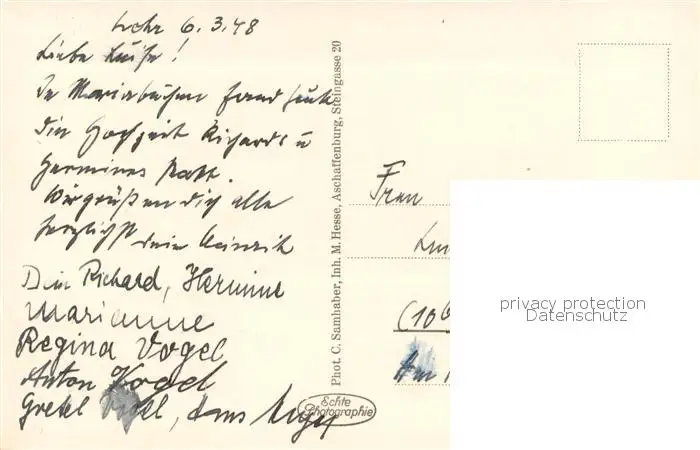 Lohr 6.3.48
Liebe Luise!
In Mariabuchen fand heute
die Hochzeit Richards u
Hermines statt.
Wir grüßen dich alle
herzlichst dein Heinrich
Dein Richard, Hermine
Marianne
Regina Vogel
Anton Vogel
Gretel Vogel, Hans
Phot. C. Samhaber, Inh. M. Hesse, Aschaffenburg, Steingasse 20
Echte
Photographie
Frau
(10b
privacy protection
Datenschutz